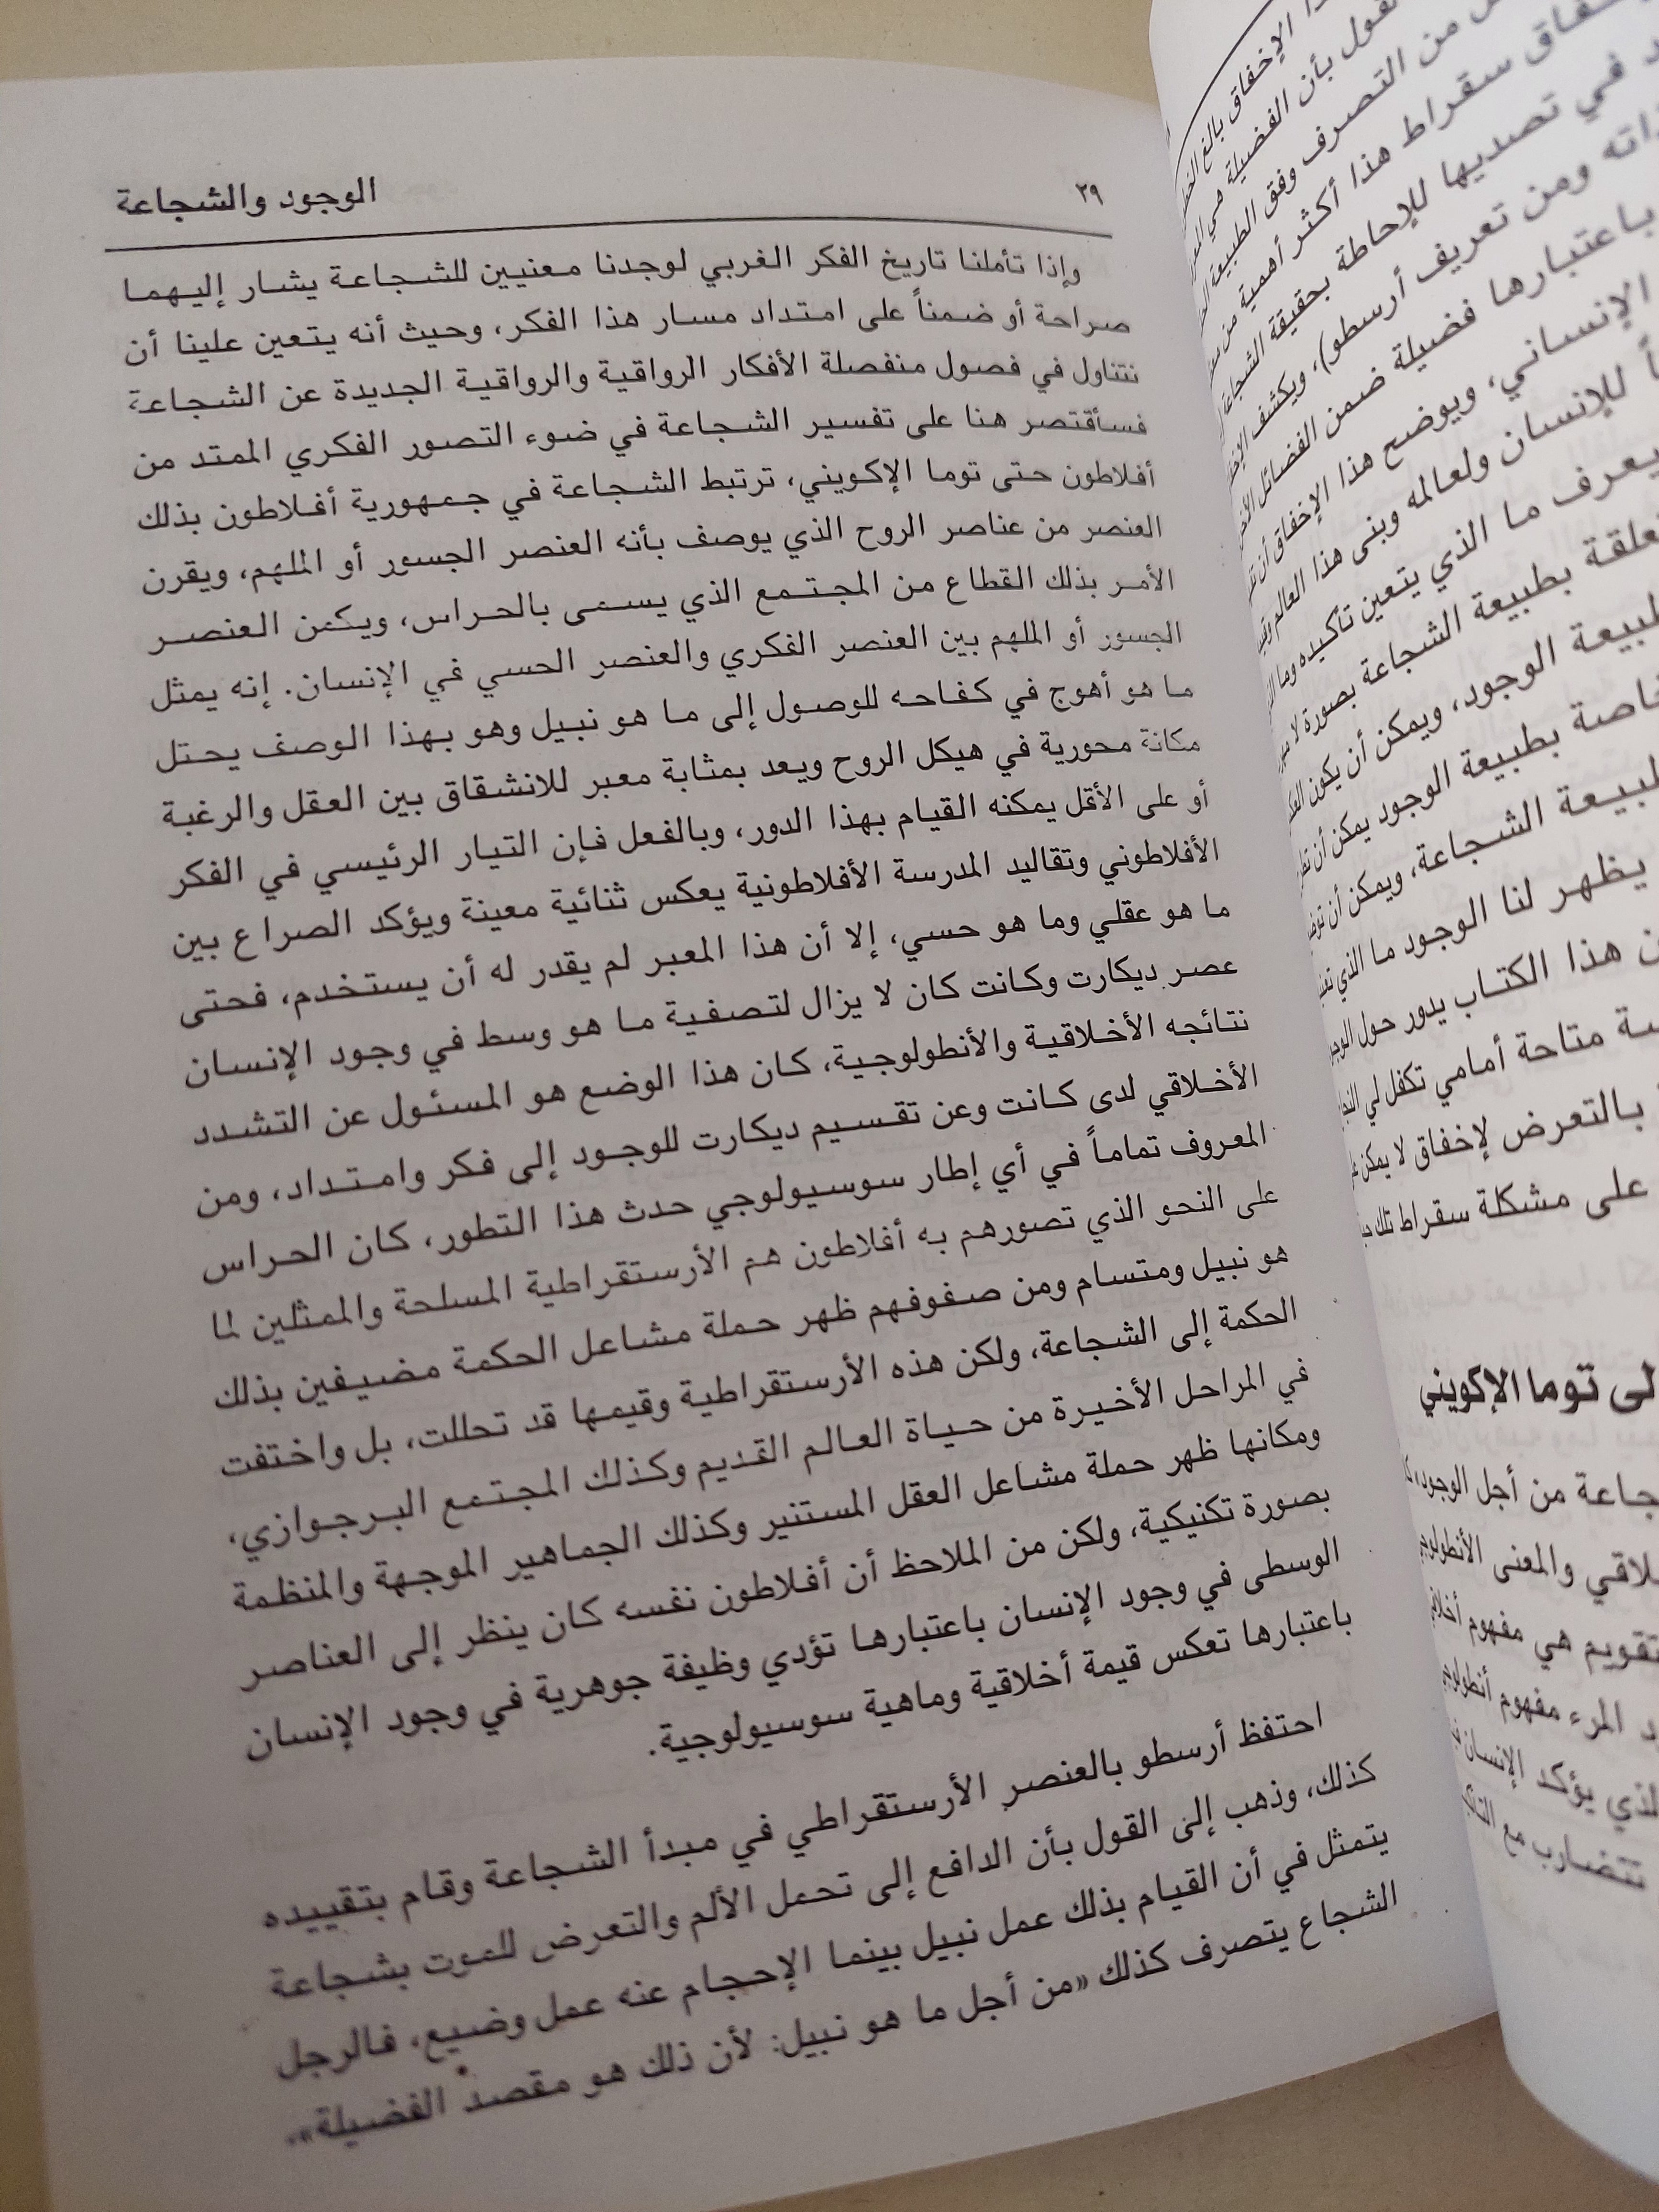 ٢٩ الوجود والشجاعة
وإذا تأملنا تاريخ الفكر الغربي لوجدنا معنيين للشجاعة يشار إليهما
صراحة أو ضمناً على امتداد مسار هذا الفكر، وحيث أنه يتعين علينا أن
نتناول في فصول منفصلة الأفكار الرواقية والرواقية الجديدة عن الشجاعة
فسأقتصر هنا على تفسير الشجاعة في ضوء التصور الفكري الممتد من
أفلاطون حتى توما الإكويني، ترتبط الشجاعة في جمهورية أفلاطون بذلك
العنصر من عناصر الروح الذي يوصف بأنه العنصر الجسور أو الملهم، ويقرن
الأمر بذلك القطاع من المجتمع الذي يسمى بالحراس، ويكمن العنصر
الجسور أو الملهم بين العنصر الفكري والعنصر الحسي في الإنسان. إنه يمثل
ما هو أهوج في كفاحه للوصول إلى ما هو نبيل وهو بهذا الوصف يحتل
مكانة محورية في هيكل الروح ويعد بمثابة معبر للانشقاق بين العقل والرغبة
أو على الأقل يمكنه القيام بهذا الدور، وبالفعل فإن التيار الرئيسي في الفكر
الأفلاطوني وتقاليد المدرسة الأفلاطونية يعكس ثنائية معينة ويؤكد الصراع بين
ما هو عقلي وما هو حسي، إلا أن هذا المعبر لم يقدر له أن يستخدم، فحتى
عصر ديكارت وكانت كان لا يزال لتصفية ما هو وسط في وجود الإنسان
نتائجه الأخلاقية والأنطولوجية، كان هذا الوضع هو المسئول عن التشدد
الأخلاقي لدى كانت وعن تقسيم ديكارت للوجود إلى فكر وامتداد، ومن
المعروف تماماً في أي إطار سوسيولوجي حدث هذا التطور، كان الحراس
على النحو الذي تصورهم به أفلاطون هم الأرستقراطية المسلحة والممثلين لما
هو نبيل ومتسام ومن صفوفهم ظهر حملة مشاعل الحكمة مضيفين بذلك
الحكمة إلى الشجاعة، ولكن هذه الأرستقراطية وقيمها قد تحللت، بل واختفت
في المراحل الأخيرة من حياة العالم القديم وكذلك المجتمع البرجوازي،
ومكانها ظهر حملة مشاعل العقل المستنير وكذلك الجماهير الموجهة والمنظمة
بصورة تكنيكية، ولكن من الملاحظ أن أفلاطون نفسه كان ينظر إلى العناصر
الوسطى في وجود الإنسان باعتبارها تؤدي وظيفة جوهرية في وجود الإنسان
باعتبارها تعكس قيمة أخلاقية وماهية سوسيولوجية.
احتفظ أرسطو بالعنصر الأرستقراطي في مبدأ الشجاعة وقام بتقييده
كذلك، وذهب إلى القول بأن الدافع إلى تحمل الألم والتعرض للموت بشجاعة
يتمثل في أن القيام بذلك عمل نبيل بينما الإحجام عنه عمل وضيع، فالرجل
الشجاع يتصرف كذلك «من أجل ما هو نبيل: لأن ذلك هو مقصد الفضيلة»،
الإخفاق بالغ
نقول بأن الفضيلة هي
من التصرف وفق الطبيعة
سقراط هذا أكثر أهمية من
في تصديها للإحاطة بحقيقة الشجاعة
ومن تعريف أرسطو)، ويكشف
باعتبارها فضيلة ضمن الفضائل
الإنساني، ويوضح هذا الإخفاق أن
للإنسان ولعالمه وبنى هذا العالم
يعرف ما الذي يتعين تأكيده وما
بطبيعة الشجاعة بصورة لا
الوجود، ويمكن أن يكون
بطبيعة الوجود يمكن أن
الشجاعة، ويمكن أن
يظهر لنا الوجود ما الذي
هذا الكتاب يدور حول
متاحة أمامي تكفل لي
بالتعرض لإخفاق لا يمكن
على مشكلة سقراط تلك
توما الإكويني
من أجل الوجود،
والمعنى
هي مفهوم
المرء مفهوم
يؤكد الإنسان
تتضارب مع